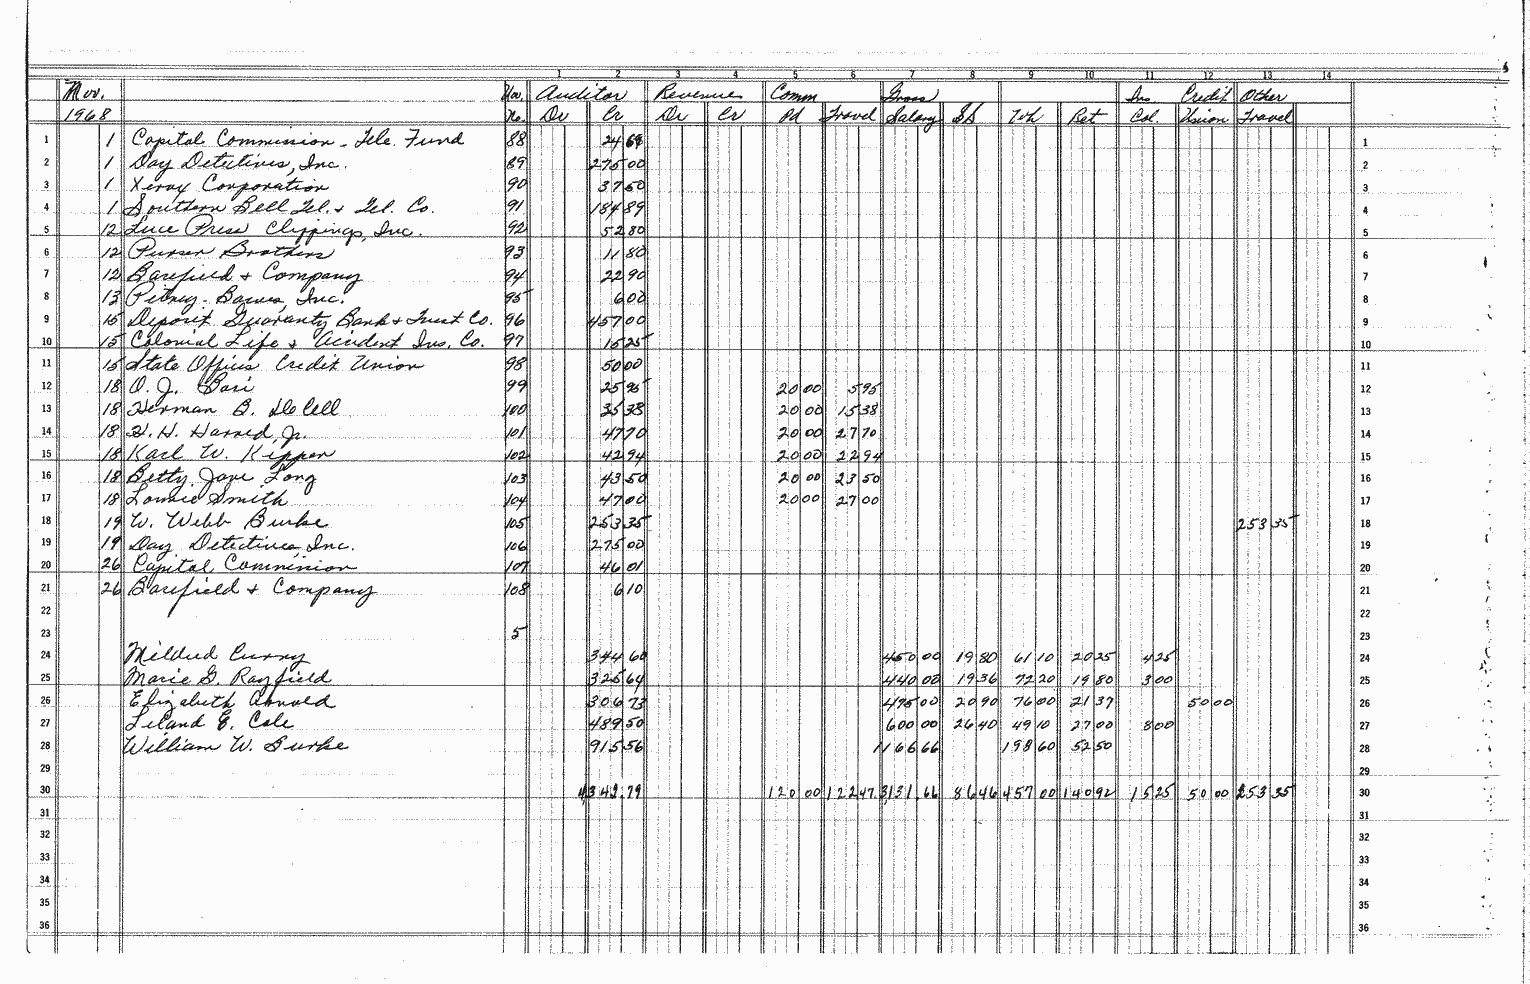 1 2 3 4 5 6 7 8 9 10 11 12 13 14
Nov. Vou. Auditor Revenue Comm Gross Ins Credit Other
1968 No. Dr Cr Dr Cr Pd Travel Salary SS Wh Ret Col. Union Travel
1 1 Capital Commission - Tele. Fund 88 24 69 1
2 1 Day Detectives, Inc. 89 275 00 2
3 1 Xerox Corporation 90 37 50 3
4 1 Southern Bell Tel. & Tel. Co. 91 184 89 4
5 12 Luce Press Clippings, Inc. 92 52 80 5
6 12 Purser Brothers 93 11 80 6
7 12 Barefield & Company 94 22 90 7
8 13 Pitney-Bowes, Inc. 95 6 00 8
9 15 Deposit Guaranty Bank & Trust Co. 96 457 00 9
10 15 Colonial Life & Accident Ins. Co. 97 15 25 10
11 15 State Offices Credit Union 98 50 00 11
12 18 O. J. 99 25 95 20 00 5 95 12
13 18 Herman B. DeCell 100 35 38 20 00 15 38 13
14 18 H. H. Harned, Jr. 101 47 70 20 00 27 70 14
15 18 Karl W. Kepper 102 42 94 20 00 22 94 15
16 18 Betty Jane Long 103 43 50 20 00 23 50 16
17 18 Lonnie Smith 104 47 00 20 00 27 00 17
18 19 W. Webb Burke 105 253 35 253 35 18
19 19 Day Detectives, Inc. 106 275 00 19
20 26 Capital Commission 107 46 01 20
21 26 Barefield & Company 108 6 10 21
22 22
23 5 23
24 Mildred Curry 344 60 450 00 19 80 61 10 20 25 4 25 24
25 Marie G. Rayfield 325 64 440 00 19 36 72 20 19 80 3 00 25
26 Elizabeth Arnold 306 73 475 00 20 90 76 00 21 37 50 00 26
27 Leland E. Cole 489 50 600 00 26 40 49 10 27 00 8 00 27
28 William W. Burke 915 56 1166 66 198 60 52 50 28
29 29
30 4342.79 120 00 122 47 3131.66 86 46 457 00 140 92 15 25 50 00 253 35 30
31 31
32 32
33 33
34 34
35 35
36 36